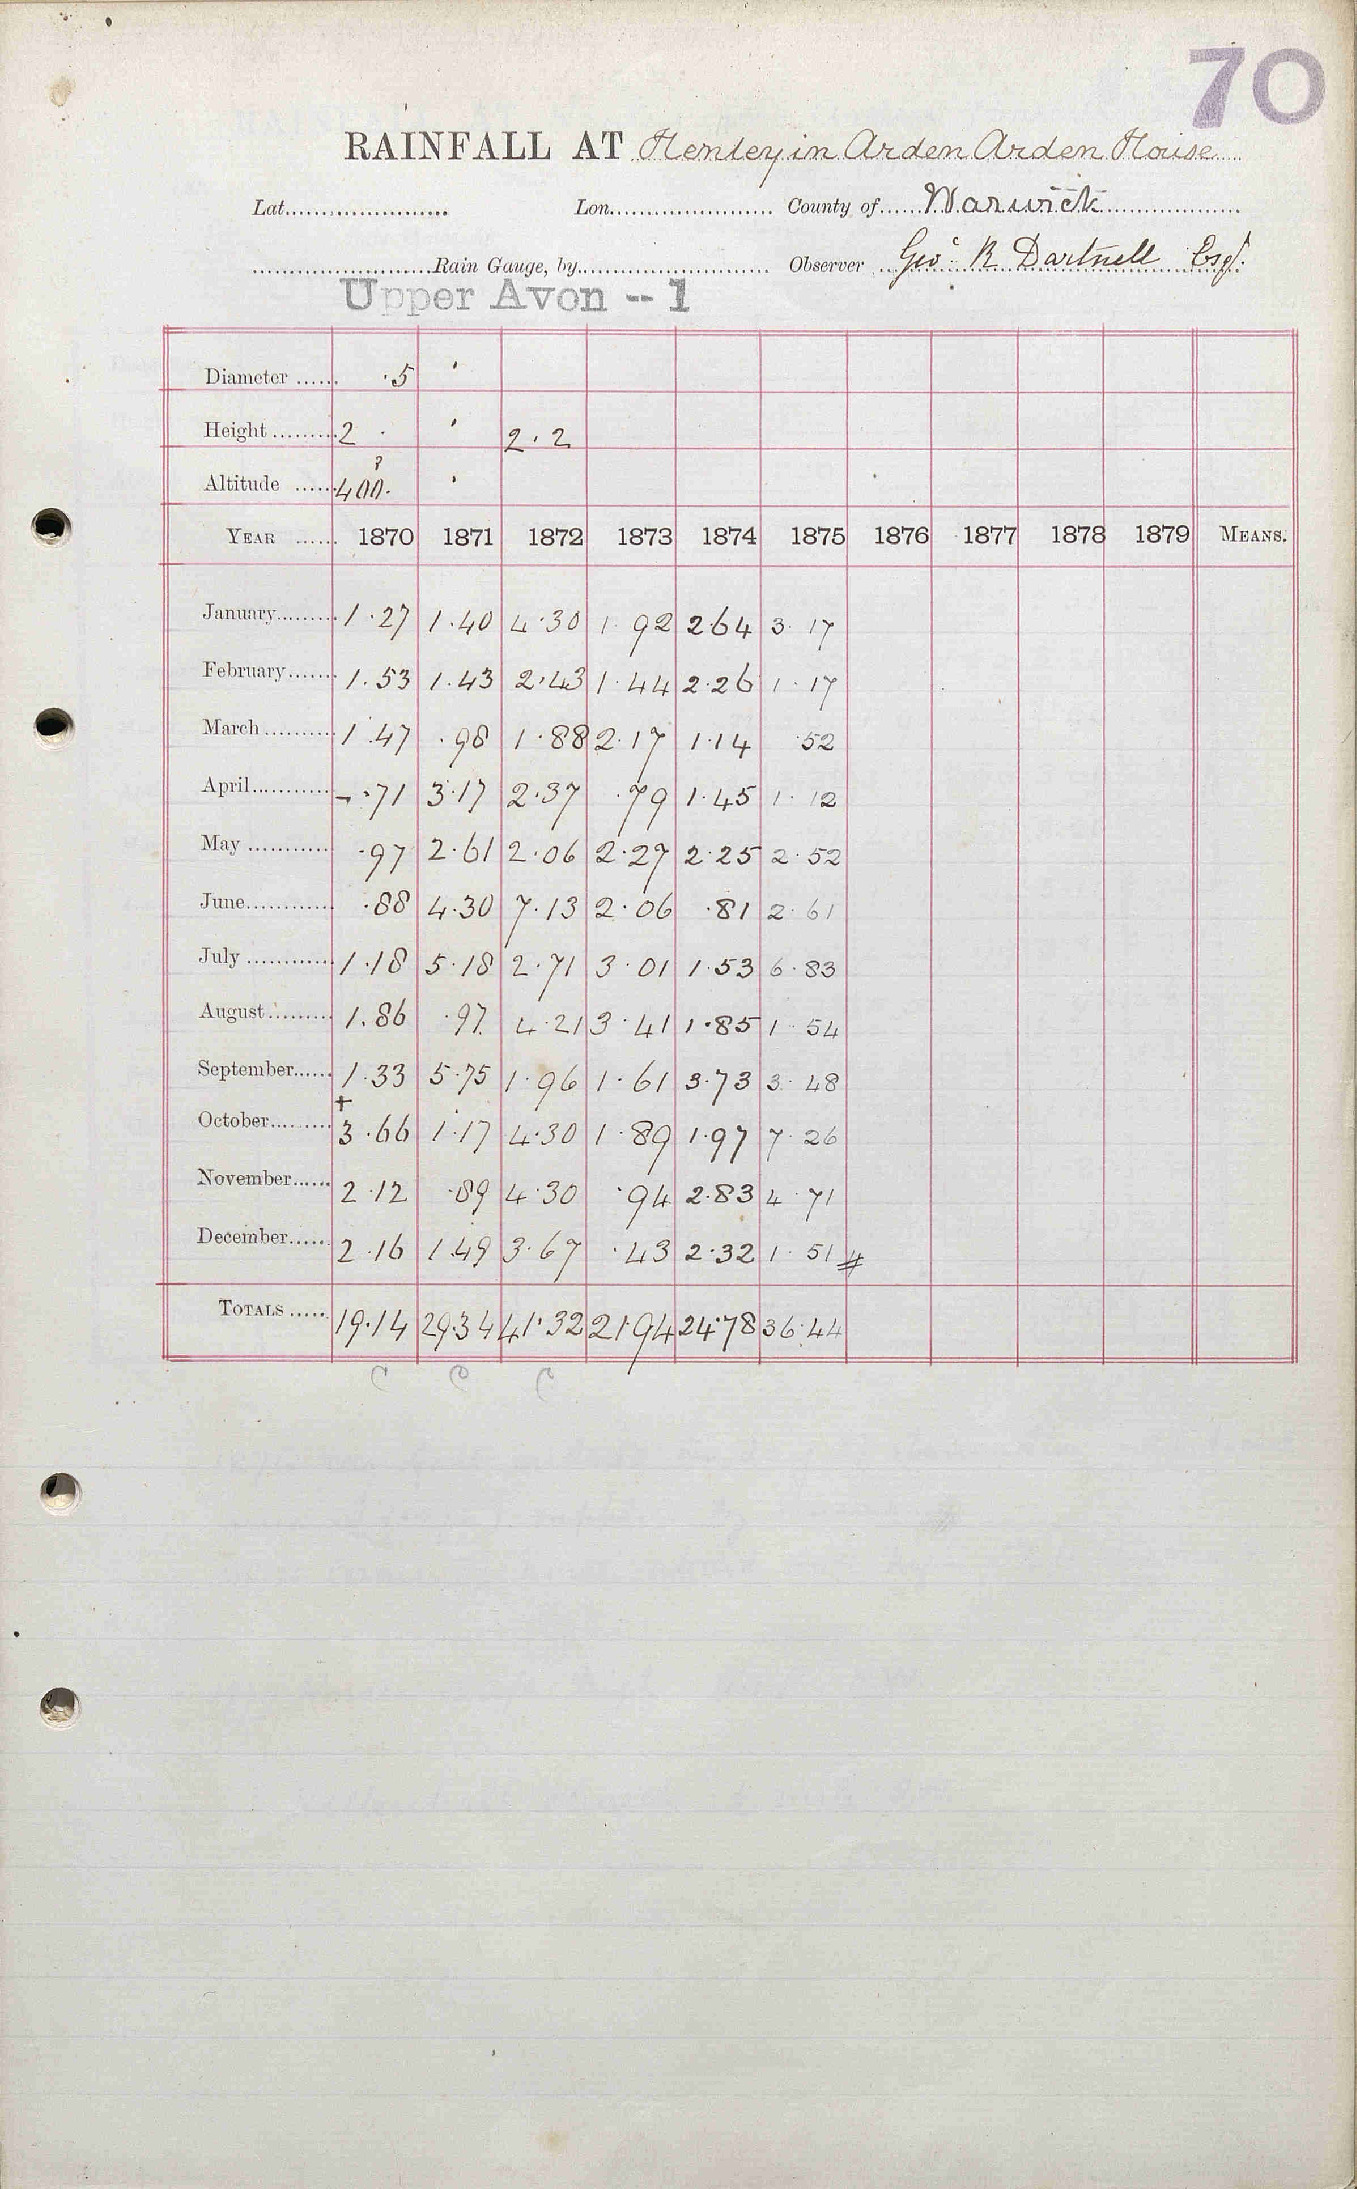 70
RAINFALL AT Henley in Arden Arden House
Lat. Lon. County of Warwick
Rain Gauge, by Observer Geo. R Dartnell Esqr.
Upper Avon -- 1
Diameter ·5 '
Height 2 · ' 2·2
Altitude 400· ? '
YEAR 1870 1871 1872 1873 1874 1875 1876 1877 1878 1879 MEANS.
January 1·27 1·40 4·30 1·92 2·64 3·17
February 1·53 1·43 2·43 1·44 2·26 1·17
March 1·47 ·98 1·88 2·17 1·14 ·52
April - ·71 3·17 2·37 ·79 1·45 1·12
May ·97 2·61 2·06 2·27 2·25 2·52
June ·88 4·30 7·13 2·06 ·81 2·61
July 1·18 5·18 2·71 3·01 1·53 6·83
August 1·86 ·97 4·21 3·41 1·85 1·54
September 1·33 5·75 1·96 1·61 3·73 3·48
October + 3·66 1·17 4·30 1·89 1·97 7·26
November 2·12 ·89 4·30 ·94 2·83 4·71
December 2·16 1·49 3·67 ·43 2·32 1·51 #
TOTALS 19·14 29·34 41·32 21·94 24·78 36·44
C C C